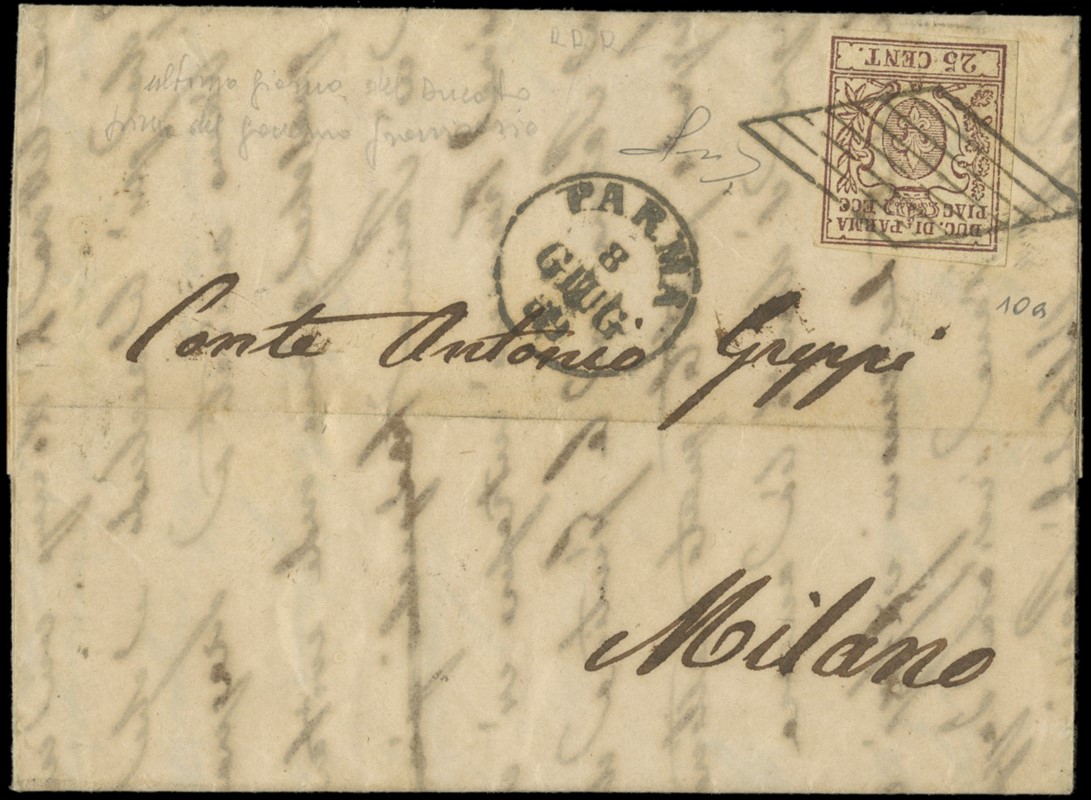 R.R.R
ultimo giorno del Ducato
prima del governo provvisorio
25 CENT.
DUC. DI PARMA
PIAC. ECC
PARMA
8
GIUG
59
10a
Conte Antonio Greppi
Milano